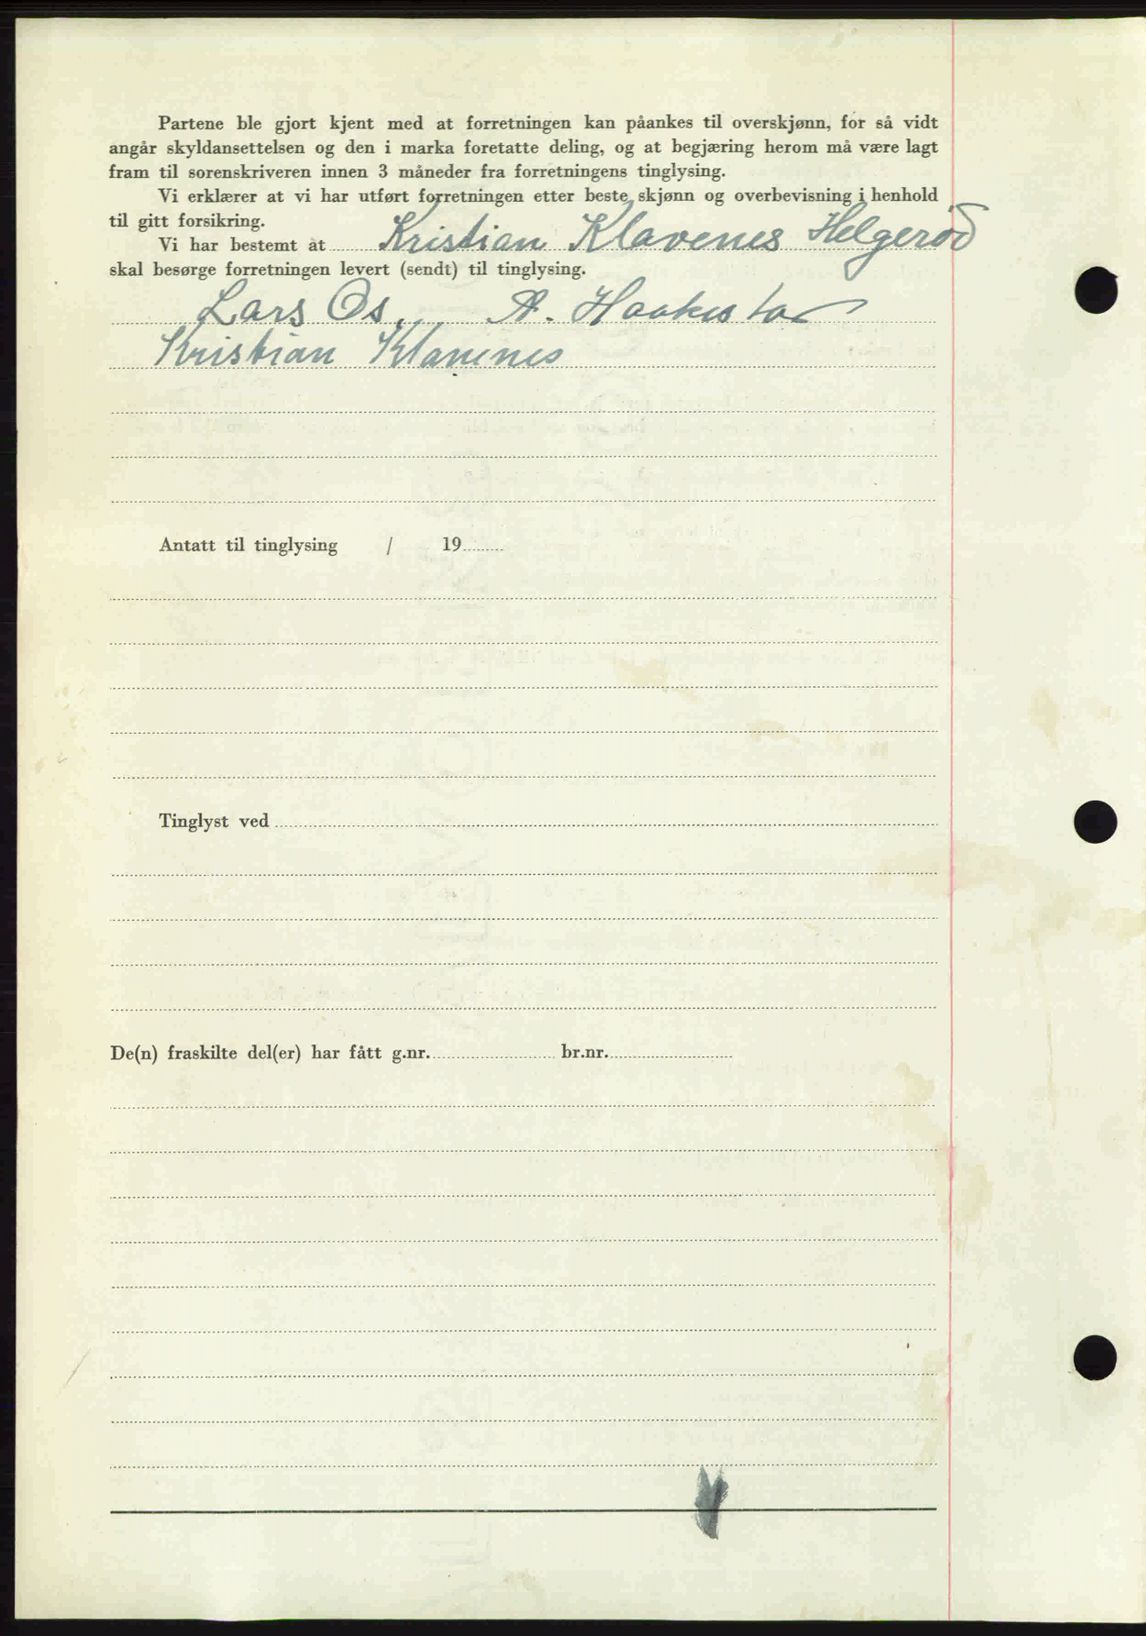 Partene ble gjort kjent med at forretningen kan påankes til overskjønn, for så vidt
angår skyldansettelsen og den i marka foretatte deling, og at begjæring herom må være lagt
fram til sorenskriveren innen 3 måneder fra forretningens tinglysing.
Vi erklærer at vi har utført forretningen etter beste skjønn og overbevisning i henhold
til gitt forsikring.
Vi har bestemt at Kristian Klavenes Helgerød
skal besørge forretningen levert (sendt) til tinglysing.
Lars Os. A. Haakestad
Kristian Klavenes
Antatt til tinglysing / 19
Tinglyst ved
De(n) fraskilte del(er) har fått g.nr. br.nr.